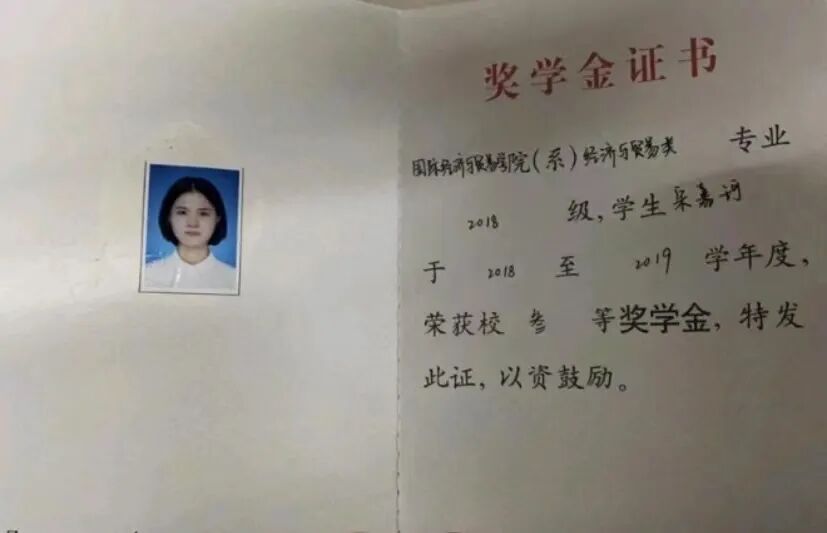 奖学金证书
国际经济与贸易学院(系)经济与贸易类 专业
2018 级,学生采嘉诃
于 2018 至 2019 学年度,
荣获校 叁 等奖学金,特发
此证,以资鼓励。